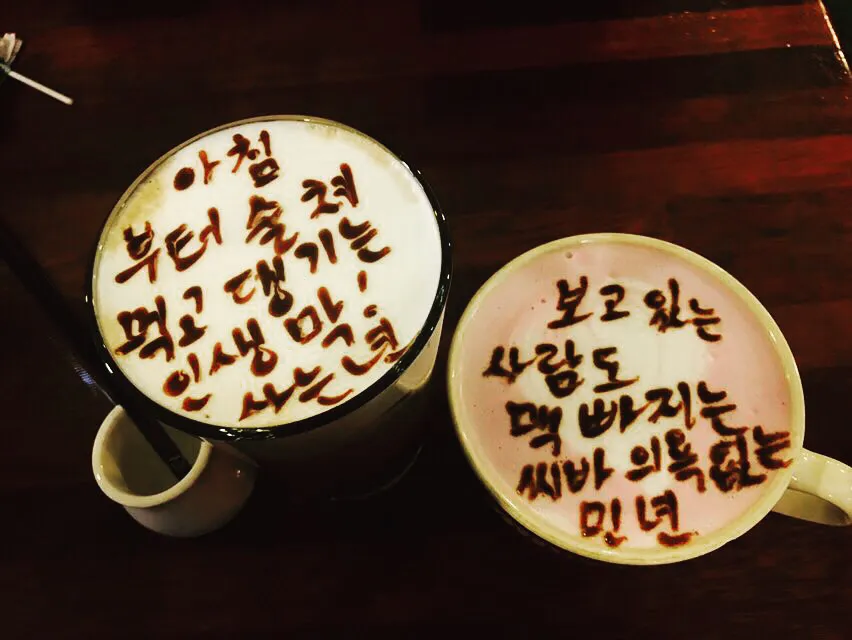 아침
부터 술 쳐
먹고 댕기는
인생 막
사는 년!
보고 있는
사람도
맥 빠지는
씨바 의욕없는
민년